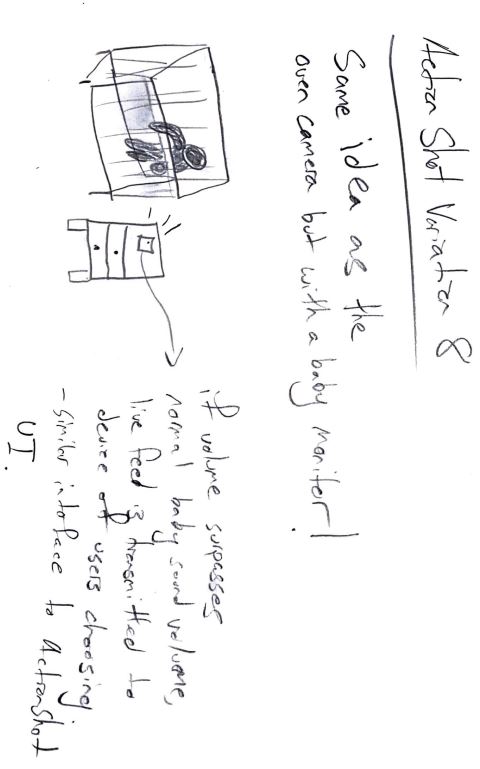 Action Shot Variation 8
Same idea as the
oven camera but with a baby monitor!
if volume surpasses
normal baby sound volume,
live feed is transmitted to
device of users choosing.
- similar interface to ActionShot
UI.